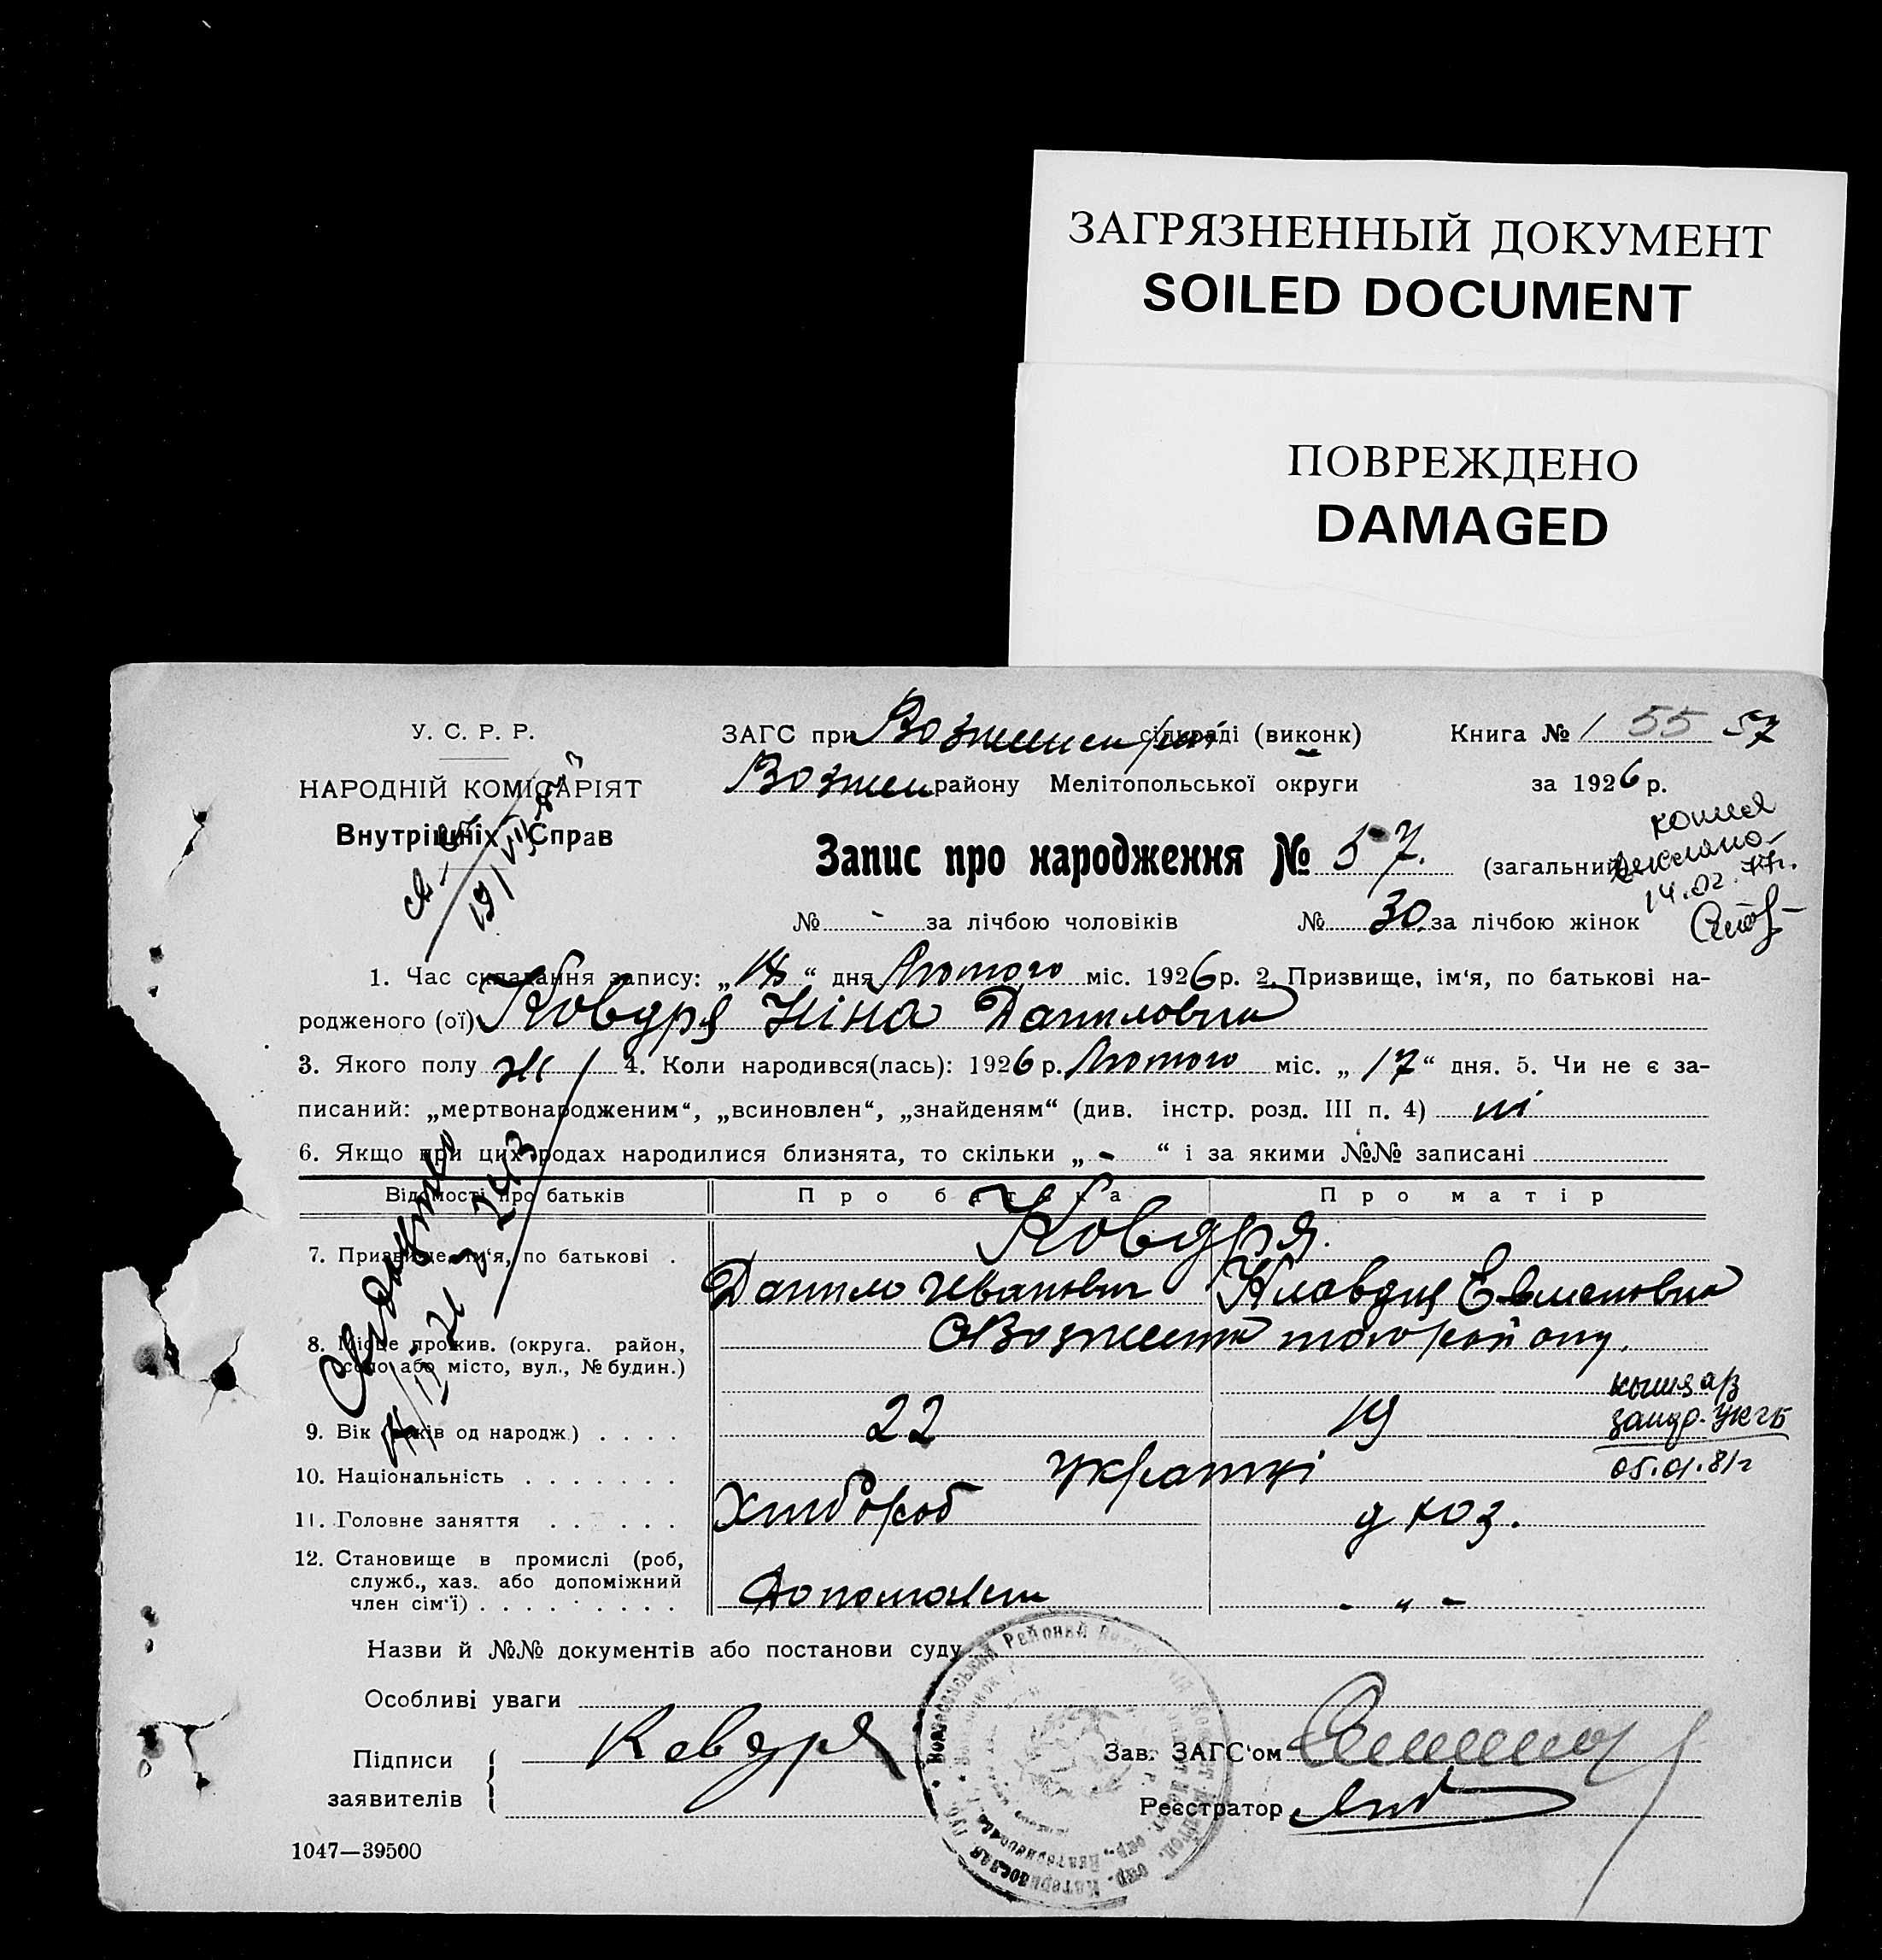 ЗАГРЯЗНЕННЫЙ ДОКУМЕНТ
SOILED DOCUMENT
ПОВРЕЖДЕНО
DAMAGED
У. С. Р. Р.
НАРОДНІЙ КОМІСАРІЯТ
Внутрішніх Справ
ЗАГС при сількраді (виконк)
району Мелітопольської округи
Книга № 55 57
за 1926 р.
Запис про народження № 57. (загальний)
копия
14.02.77г.
№ - за лічбою чоловіків № 30. за лічбою жінок
1. Час складання запису: „18“ дня Лютого міс. 1926 р. 2. Призвище, ім‘я, по батькові на-
родженого (ої) Ковдря Ніна Даниловна
3. Якого полу ж 4. Коли народився(лась): 1926 р. Лютого міс. „17“ дня. 5. Чи не є за-
писаний: „мертвонародженим“, „всиновлен“, „знайденям“ (див. інстр. розд. III п. 4) ні
6. Якщо при цих родах народилися близнята, то скільки „-“ і за якими №№ записані
Відомості про батьків Про батька Про матір
Ковдря.
7. Призвище, ім‘я, по батькові .
Данило Иванович Клавдия
8. Місце прожив. (округа. район,
село або місто, вул., № будин.)
9. Вік (років од народж) . . . . 22 19
05.01.81г
10. Національність . . . . . . . українці
11. Головне заняття . . . . . . Хлібороб
12. Становище в промислі (роб,
служб., хаз. або допоміжний
член сім‘ї) . . . . . . . . . - „ -
Назви й №№ документів або постанови суду
Особливі уваги
Підписи
заявителів
Ковдря
Зав. ЗАГС‘ом
Реєстратор
1047—39500